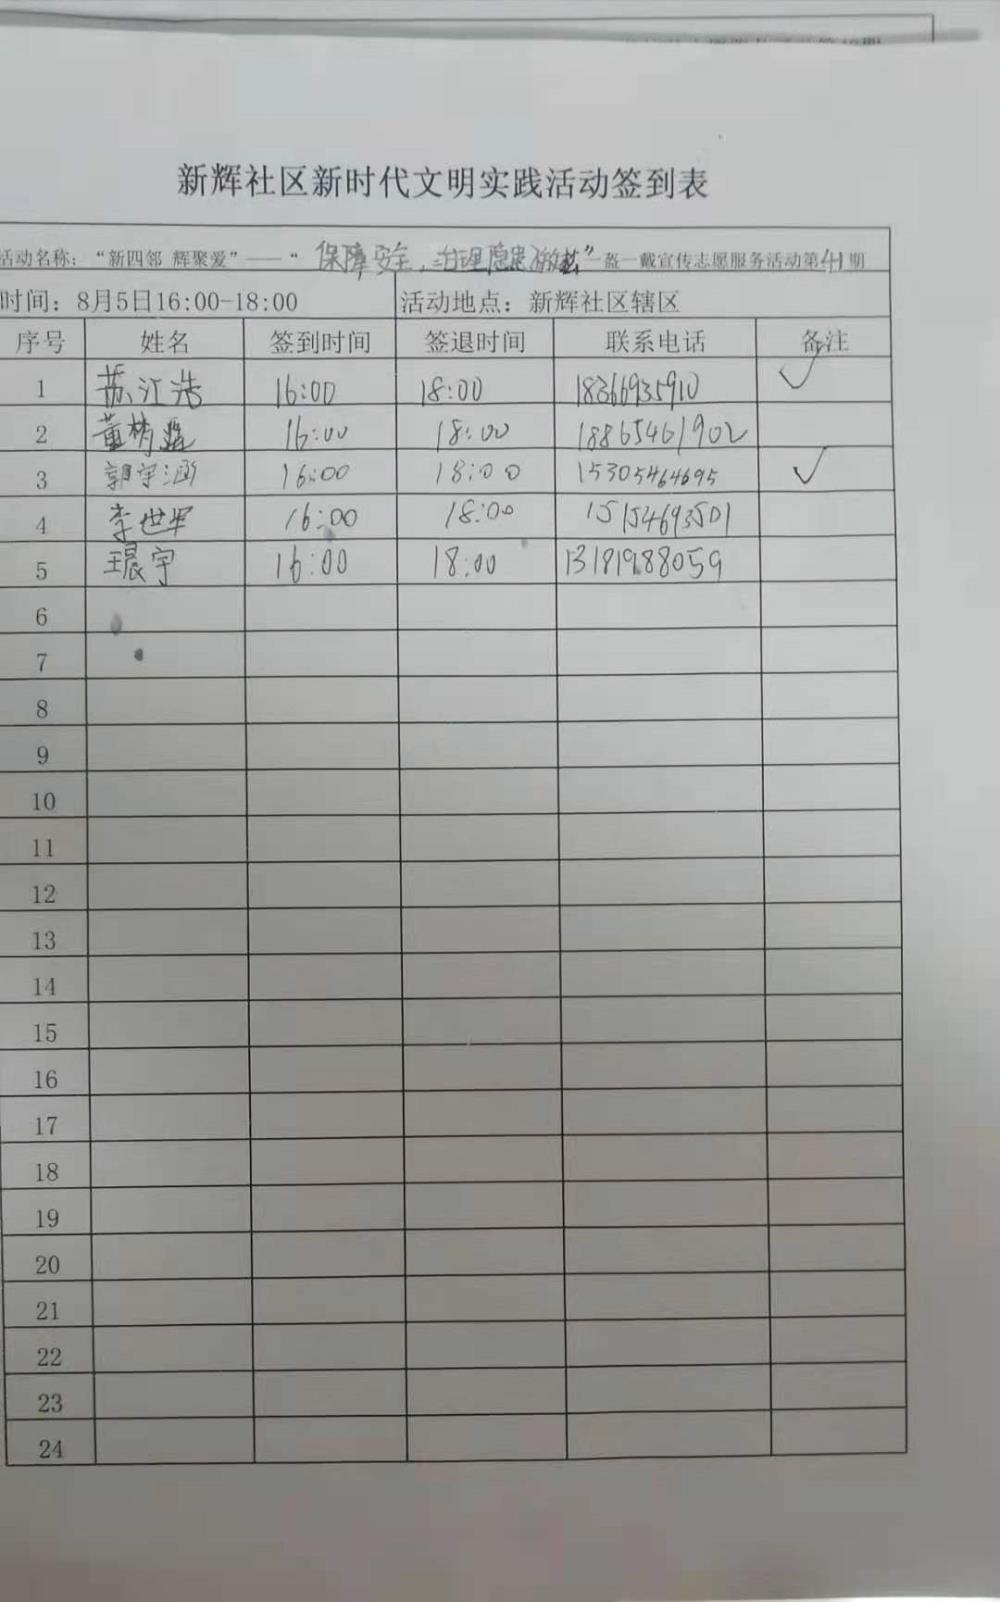 新辉社区新时代文明实践活动签到表
活动名称：“新四邻 辉聚爱”——“保障安全，治理隐患”一盔一戴宣传志愿服务活动第41期
时间：8月5日16:00-18:00 活动地点：新辉社区辖区
序号 姓名 签到时间 签退时间 联系电话 备注
1 苏江浩 16:00 18:00 18366935910 ✓
2 董 16:00 18:00 18865461902
3 郭宇涵 16:00 18:00 15305464695 ✓
4 李世军 16:00 18:00 15154693501
5 王晨宇 16:00 18:00 13181988059
6
7
8
9
10
11
12
13
14
15
16
17
18
19
20
21
22
23
24